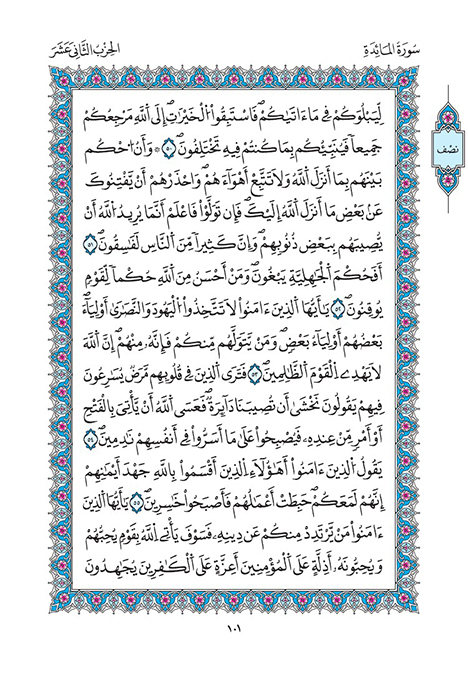 سُورَةُ المَائِدَةِ
الحِزْبُ الثَّانِي عَشَرَ
نصْف
لِّيَبْلُوَكُمْ فِے مَا ءَاتَيٰكُمْ فَاسْتَبِقُوا الْخَيْرَٰتِ إِلَى اَللَّهِ مَرْجِعُكُمْ
جَمِيعاٗ فَيُنَبِّئُكُم بِمَا كُنتُمْ فِيهِ تَخْتَلِفُونَ ٥٠ وَأَنُ احْكُم
بَيْنَهُم بِمَا أَنزَلَ اَللَّهُ وَلَا تَتَّبِعَ اَهْوَآءَهُمْ وَاحْذَرْهُمُ أَنْ يَّفْتِنُوكَ
عَنۢ بَعْضِ مَا أَنزَلَ اَللَّهُ إِلَيْكَ فَإِن تَوَلَّوْاْ فَاعْلَمَ اَنَّمَا يُرِيدُ اُللَّهُ أَنْ
يُّصِيبَهُم بِبَعْضِ ذُنُوبِهِمْ وَإِنَّ كَثِيراٗ مِّنَ اَلنَّاسِ لَفَٰسِقُونَ ٥١
أَفَحُكْمَ اَلْجَٰهِلِيَّةِ يَبْغُونَ وَمَنَ اَحْسَنُ مِنَ اَللَّهِ حُكْماٗ لِّقَوْمٖ
يُوقِنُونَ ٥٢ يَٰأَيُّهَا اَلذِينَ ءَامَنُواْ لَا تَتَّخِذُواْ اُلْيَهُودَ وَالنَّصَٰرَىٰ أَوْلِيَآءَ
بَعْضُهُمُ أَوْلِيَآءُ بَعْضٖ وَمَنْ يَّتَوَلَّهُم مِّنكُمْ فَإِنَّهُۥ مِنْهُمُ إِنَّ اَللَّهَ
لَا يَهْدِے اِلْقَوْمَ اَلظَّٰلِمِينَ ٥٣ فَتَرَى اَلذِينَ فِے قُلُوبِهِم مَّرَضٞ يُسَٰرِعُونَ
فِيهِمْ يَقُولُونَ نَخْشَىٰ أَن تُصِيبَنَا دَآئِرَةٞ فَعَسَى اَللَّهُ أَنْ يَّأْتِيَ بِالْفَتْحِ
أَوَ اَمْرٖ مِّنْ عِندِهِۦ فَيُصْبِحُواْ عَلَىٰ مَا أَسَرُّواْ فِے أَنفُسِهِمْ نَٰدِمِينَ ٥٤
يَقُولُ اُلذِينَ ءَامَنُواْ أَهَٰؤُلَآءِ اِلذِينَ أَقْسَمُواْ بِاللَّهِ جَهْدَ أَيْمَٰنِهِمُ
إِنَّهُمْ لَمَعَكُمْ حَبِطَتَ اَعْمَٰلُهُمْ فَأَصْبَحُواْ خَٰسِرِينَ ٥٥ يَٰأَيُّهَا اَلذِينَ
ءَامَنُواْ مَنْ يَّرْتَدِدْ مِنكُمْ عَن دِينِهِۦ فَسَوْفَ يَأْتِے اِللَّهُ بِقَوْمٖ يُحِبُّهُمْ
وَيُحِبُّونَهُۥ أَذِلَّةٍ عَلَى اَلْمُؤْمِنِينَ أَعِزَّةٍ عَلَى اَلْكَٰفِرِينَ يُجَٰهِدُونَ
١٠١